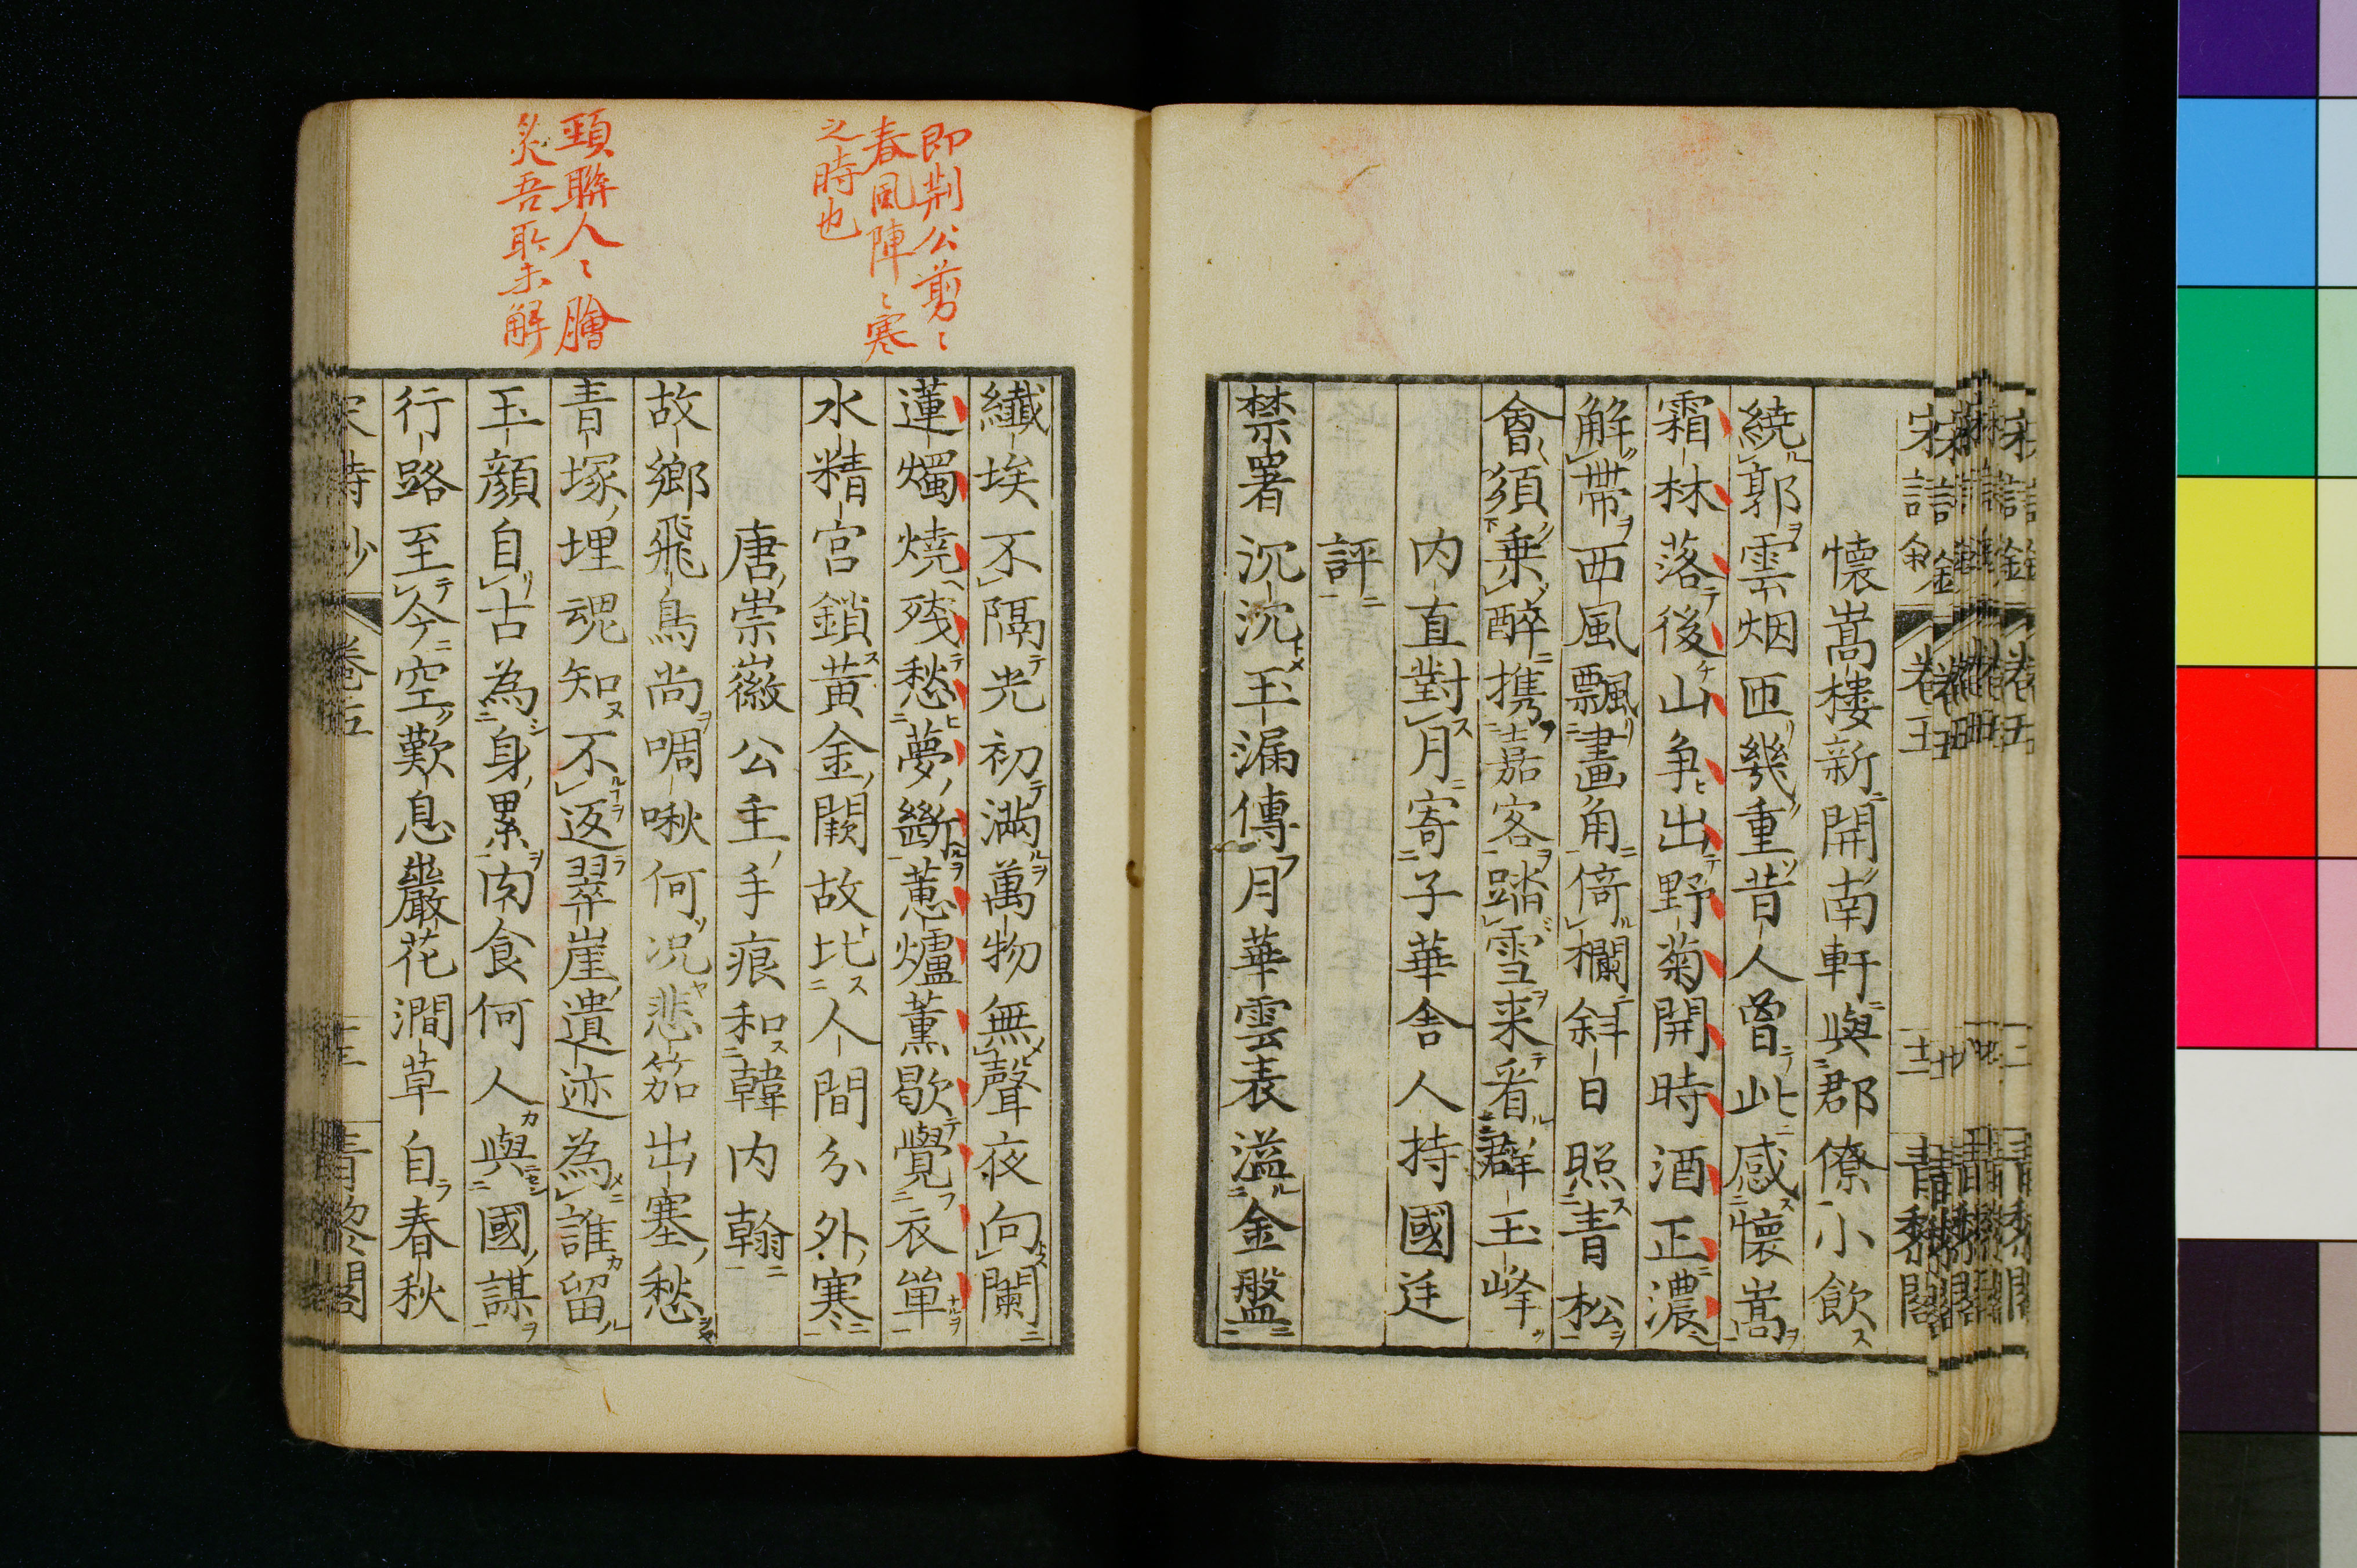 懷嵩樓新開南軒與郡僚小飲
繞郭雲烟匝幾重昔人曾此感懷嵩
霜林落後山争出野菊開時酒正濃
解帶西風飄畫角倚欄斜日照青松
會須乗醉携嘉客踏雪来看群玉峰
内直對月寄子華舍人持國廷
評
禁署沉沉玉漏傳月華雲表溢金盤
即荆公剪〻
春風陣〻寒
之時也
頸聯人〻膾
炙吾耿未解
纖埃不隔光初滿萬物無聲夜向闌
蓮燭燒殘愁夢斷蕙爐薰歇覺衣單
水精宮鎖黃金闕故比人間分外寒
唐崇徽公主手痕和韓内翰
故鄉飛鳥尚啁啾何況悲笳出塞愁
青塚埋魂知不返翠崖遺迹為誰留
玉顔自古為身累肉食何人與國謀
行路至今空歎息巖花澗草自春秋
宋詩鈔 卷五 青黎閣